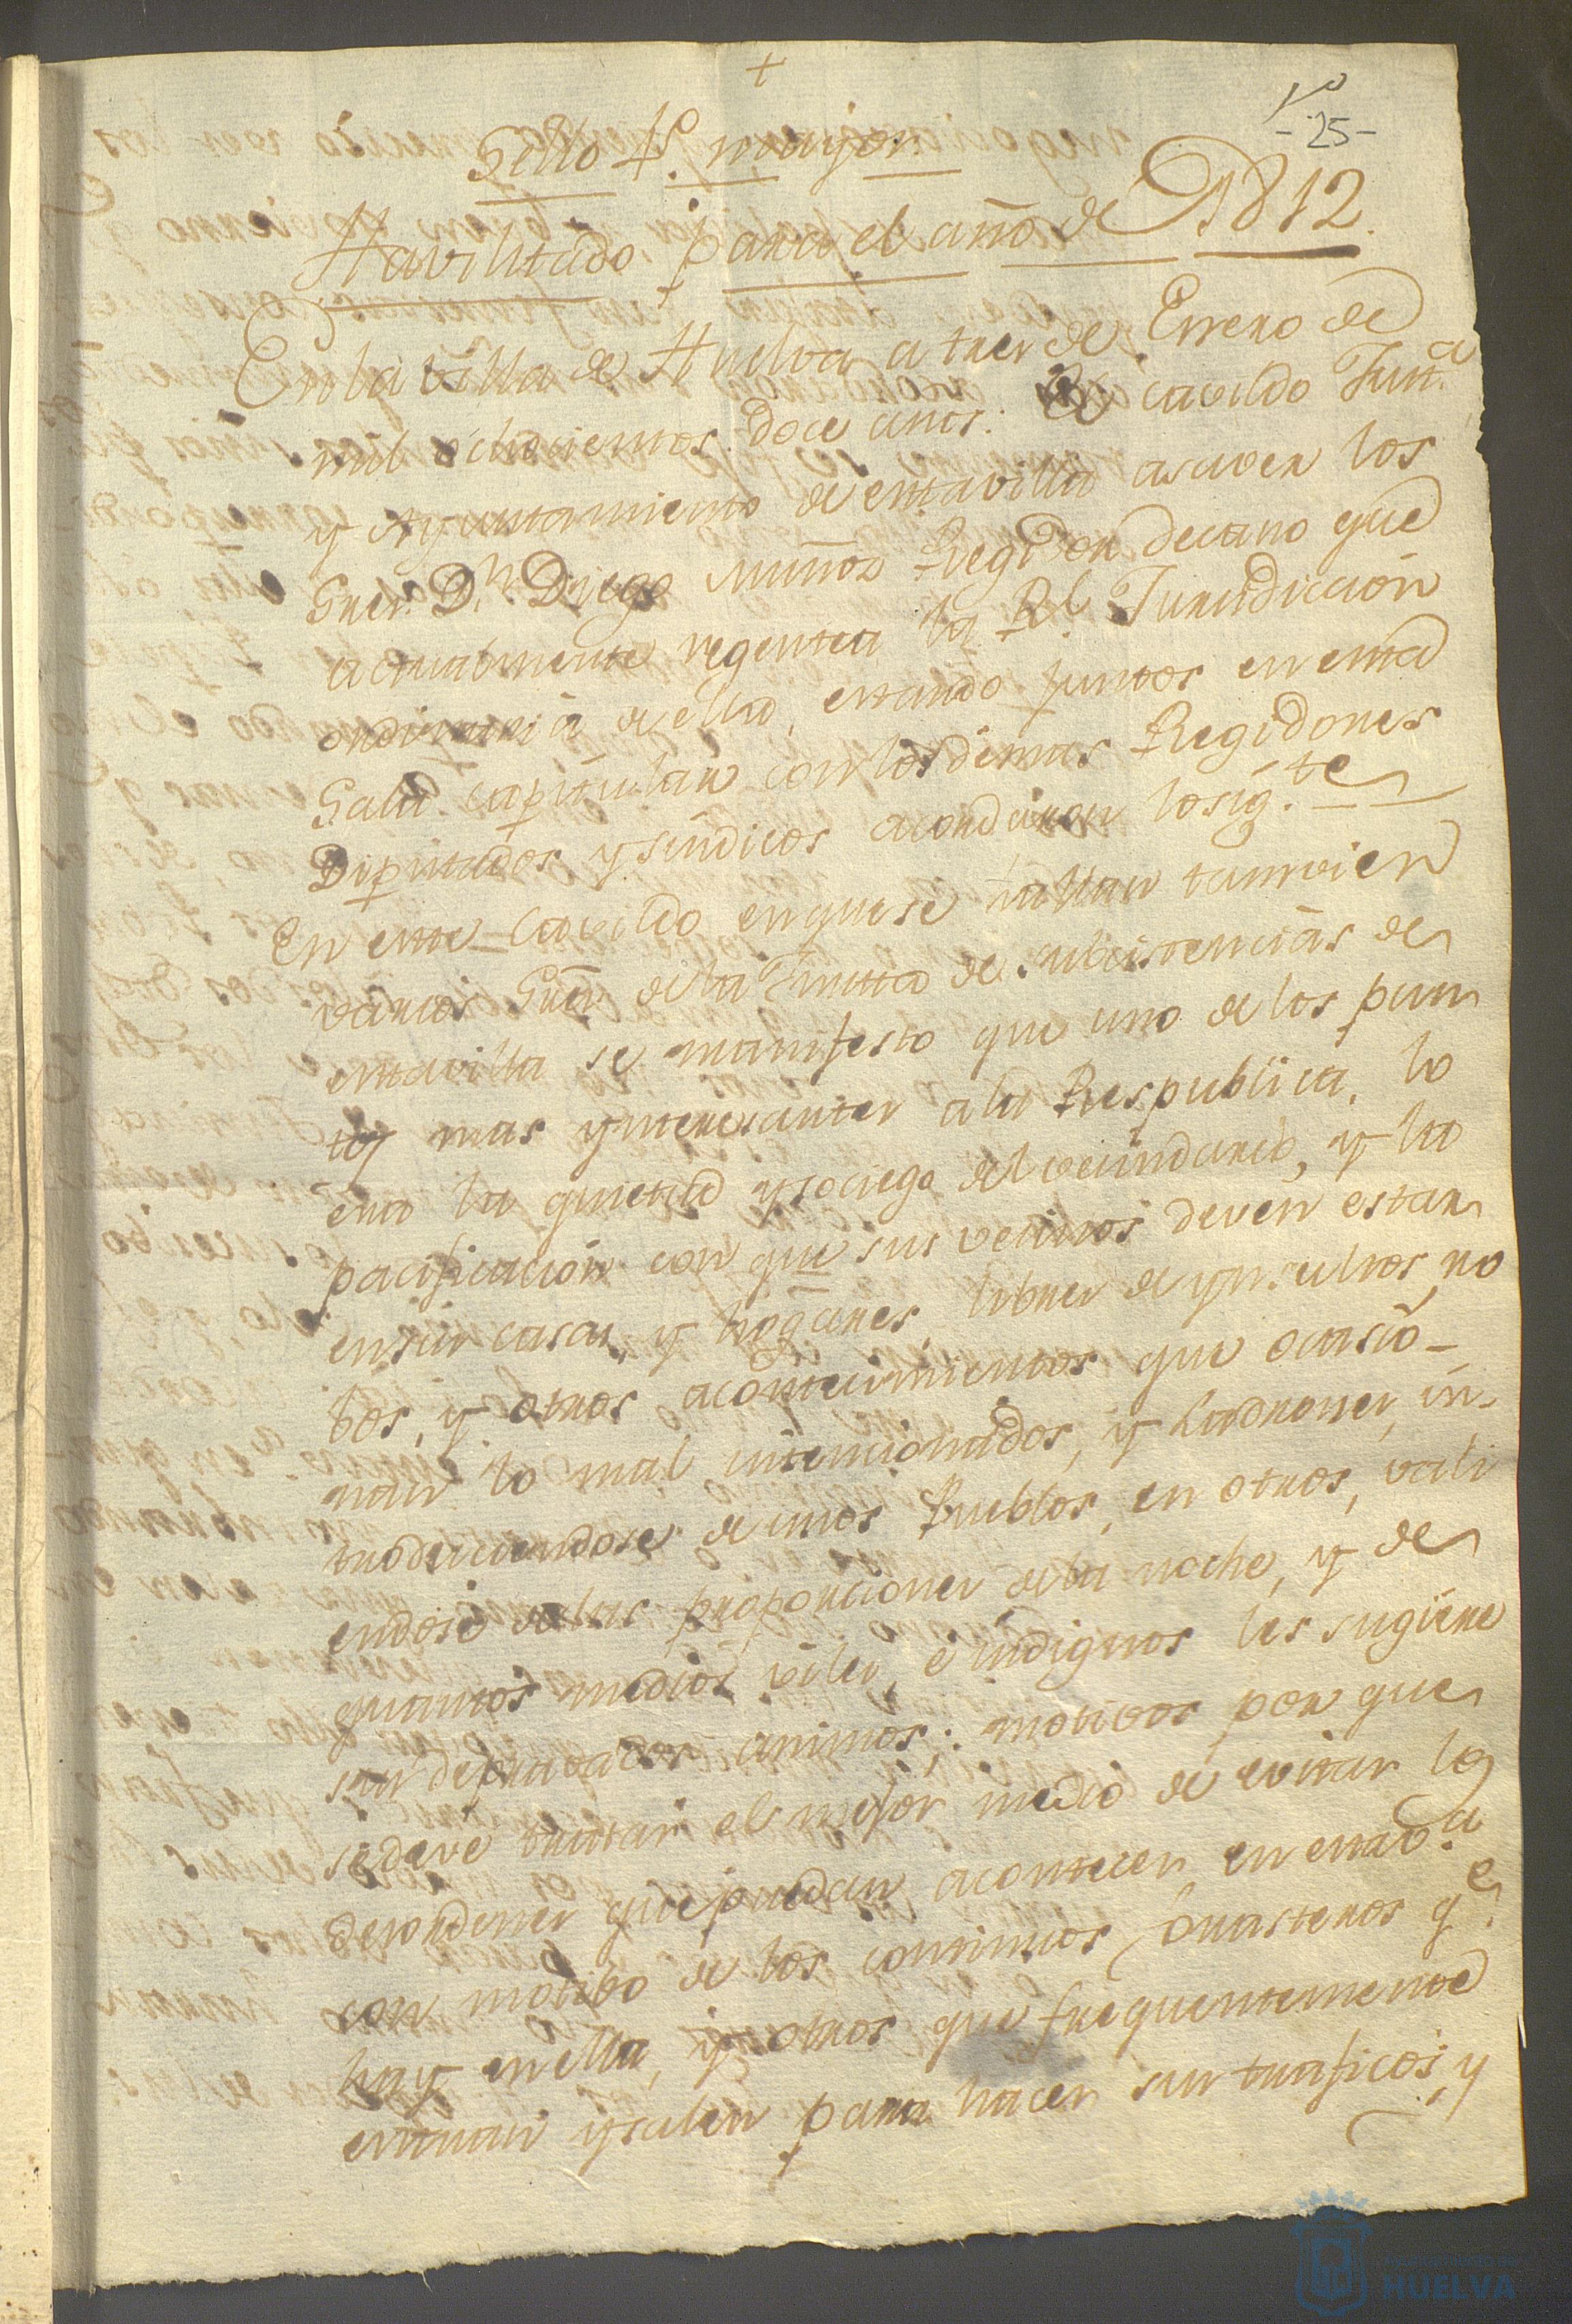 +
1º
-25-
Sello 4º. mayor
Havilitado para el año de 1812.
En la villa de Huelva a tres de Enero de
mil ochocientos doce años: El cavildo Just.a
y Ayuntamiento de esta villa asaver los
Sres. Dn. Diego Muñoz Regidor decano que
actualmente regentea la Rl. Jurisdiccion
ordinaria de ella, estando juntos en esta
Sala capitular con los demas Regidores
Diputados y sindicos acordaron lo sig.te
En este Cavildo en que se hallan tamvien
varios Sres. de la Junta de subcistencias de
esta villa se manifesto que uno de los pun
tos mas ynteresantes a la Respublica, lo
era la quietud y sociego del vecindario, y la
pacificacion con que sus vecinos deven estar
en sus casas, y hogares, libres de ynsultos, ro
bos, y otros acontecimientos que ocasio-
nan lo mal intencionados, y Ladrones, in-
troduciendose de unos Pueblos, en otros, vali
endose de las proporciones de la noche, y de
quantos medios viles, é indignos les sugiere
sus depravados animos; motivos por que
se deve tratar el mejor medio de evitar los
desordenes que puedan acontecer en esta v.a
con motibo de los continuos forasteros q.e
hay en ella, y otros que frequentemente
entran y salen para hacer sus traficos, y
HUELVA